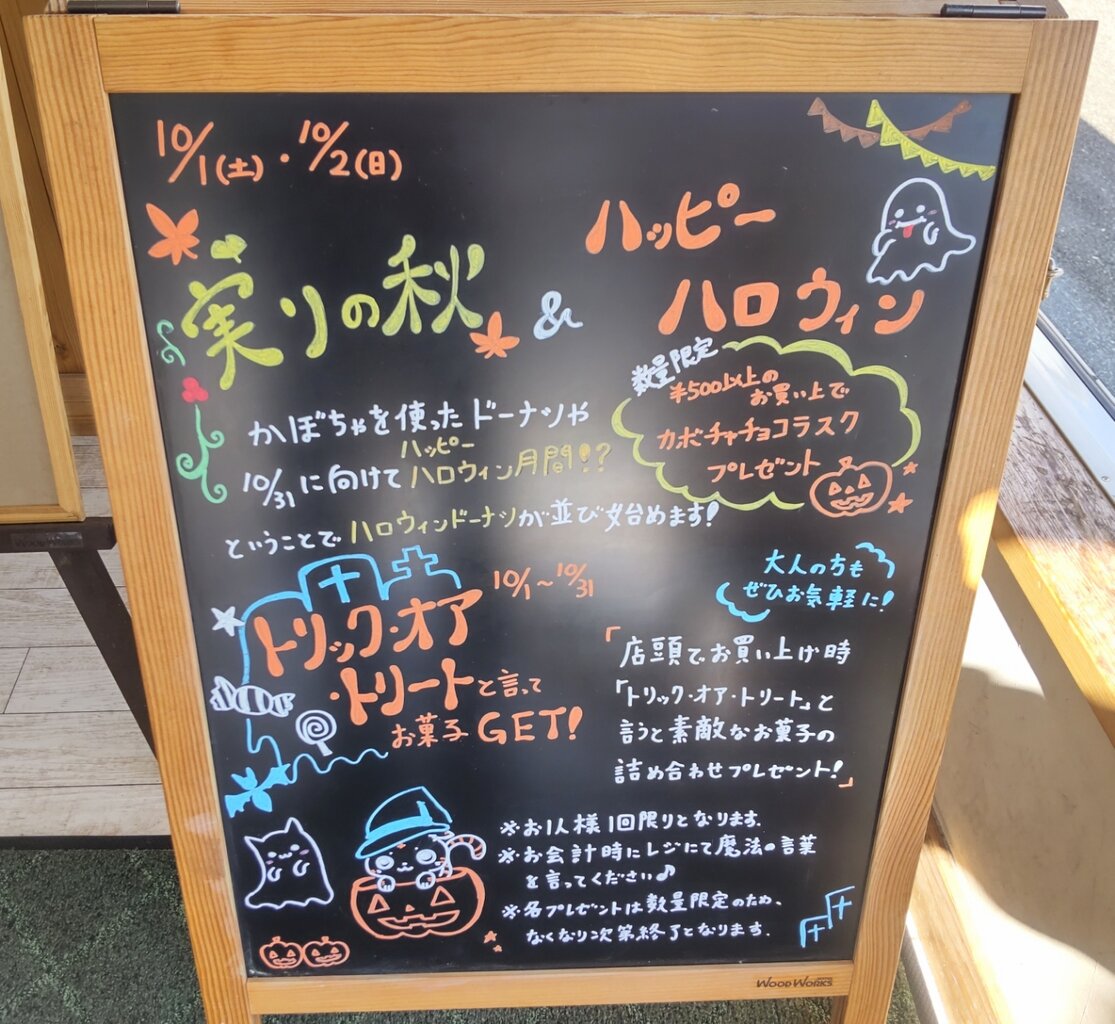 10/1(土)・10/2(日)
実りの秋
&
ハッピー
ハロウィン
数量限定
¥500以上の
お買い上で
カボチャチョコラスク
プレゼント
かぼちゃを使ったドーナツや
10/31に向けてハッピーハロウィン月間!?
ということでハロウィンドーナツが並び始めます!
10/1〜10/31
トリック・オア
・トリートと言って
お菓子GET!
大人の方も
ぜひお気軽に!
「店頭でお買い上げ時
「トリック・オア・トリート」と
言うと素敵なお菓子の
詰め合わせプレゼント!」
※お1人様1回限りとなります。
※お会計時にレジにて魔法の言葉
を言ってください♪
※各プレゼントは数量限定のため、
なくなり次第終了となります。
WOOD WORKS